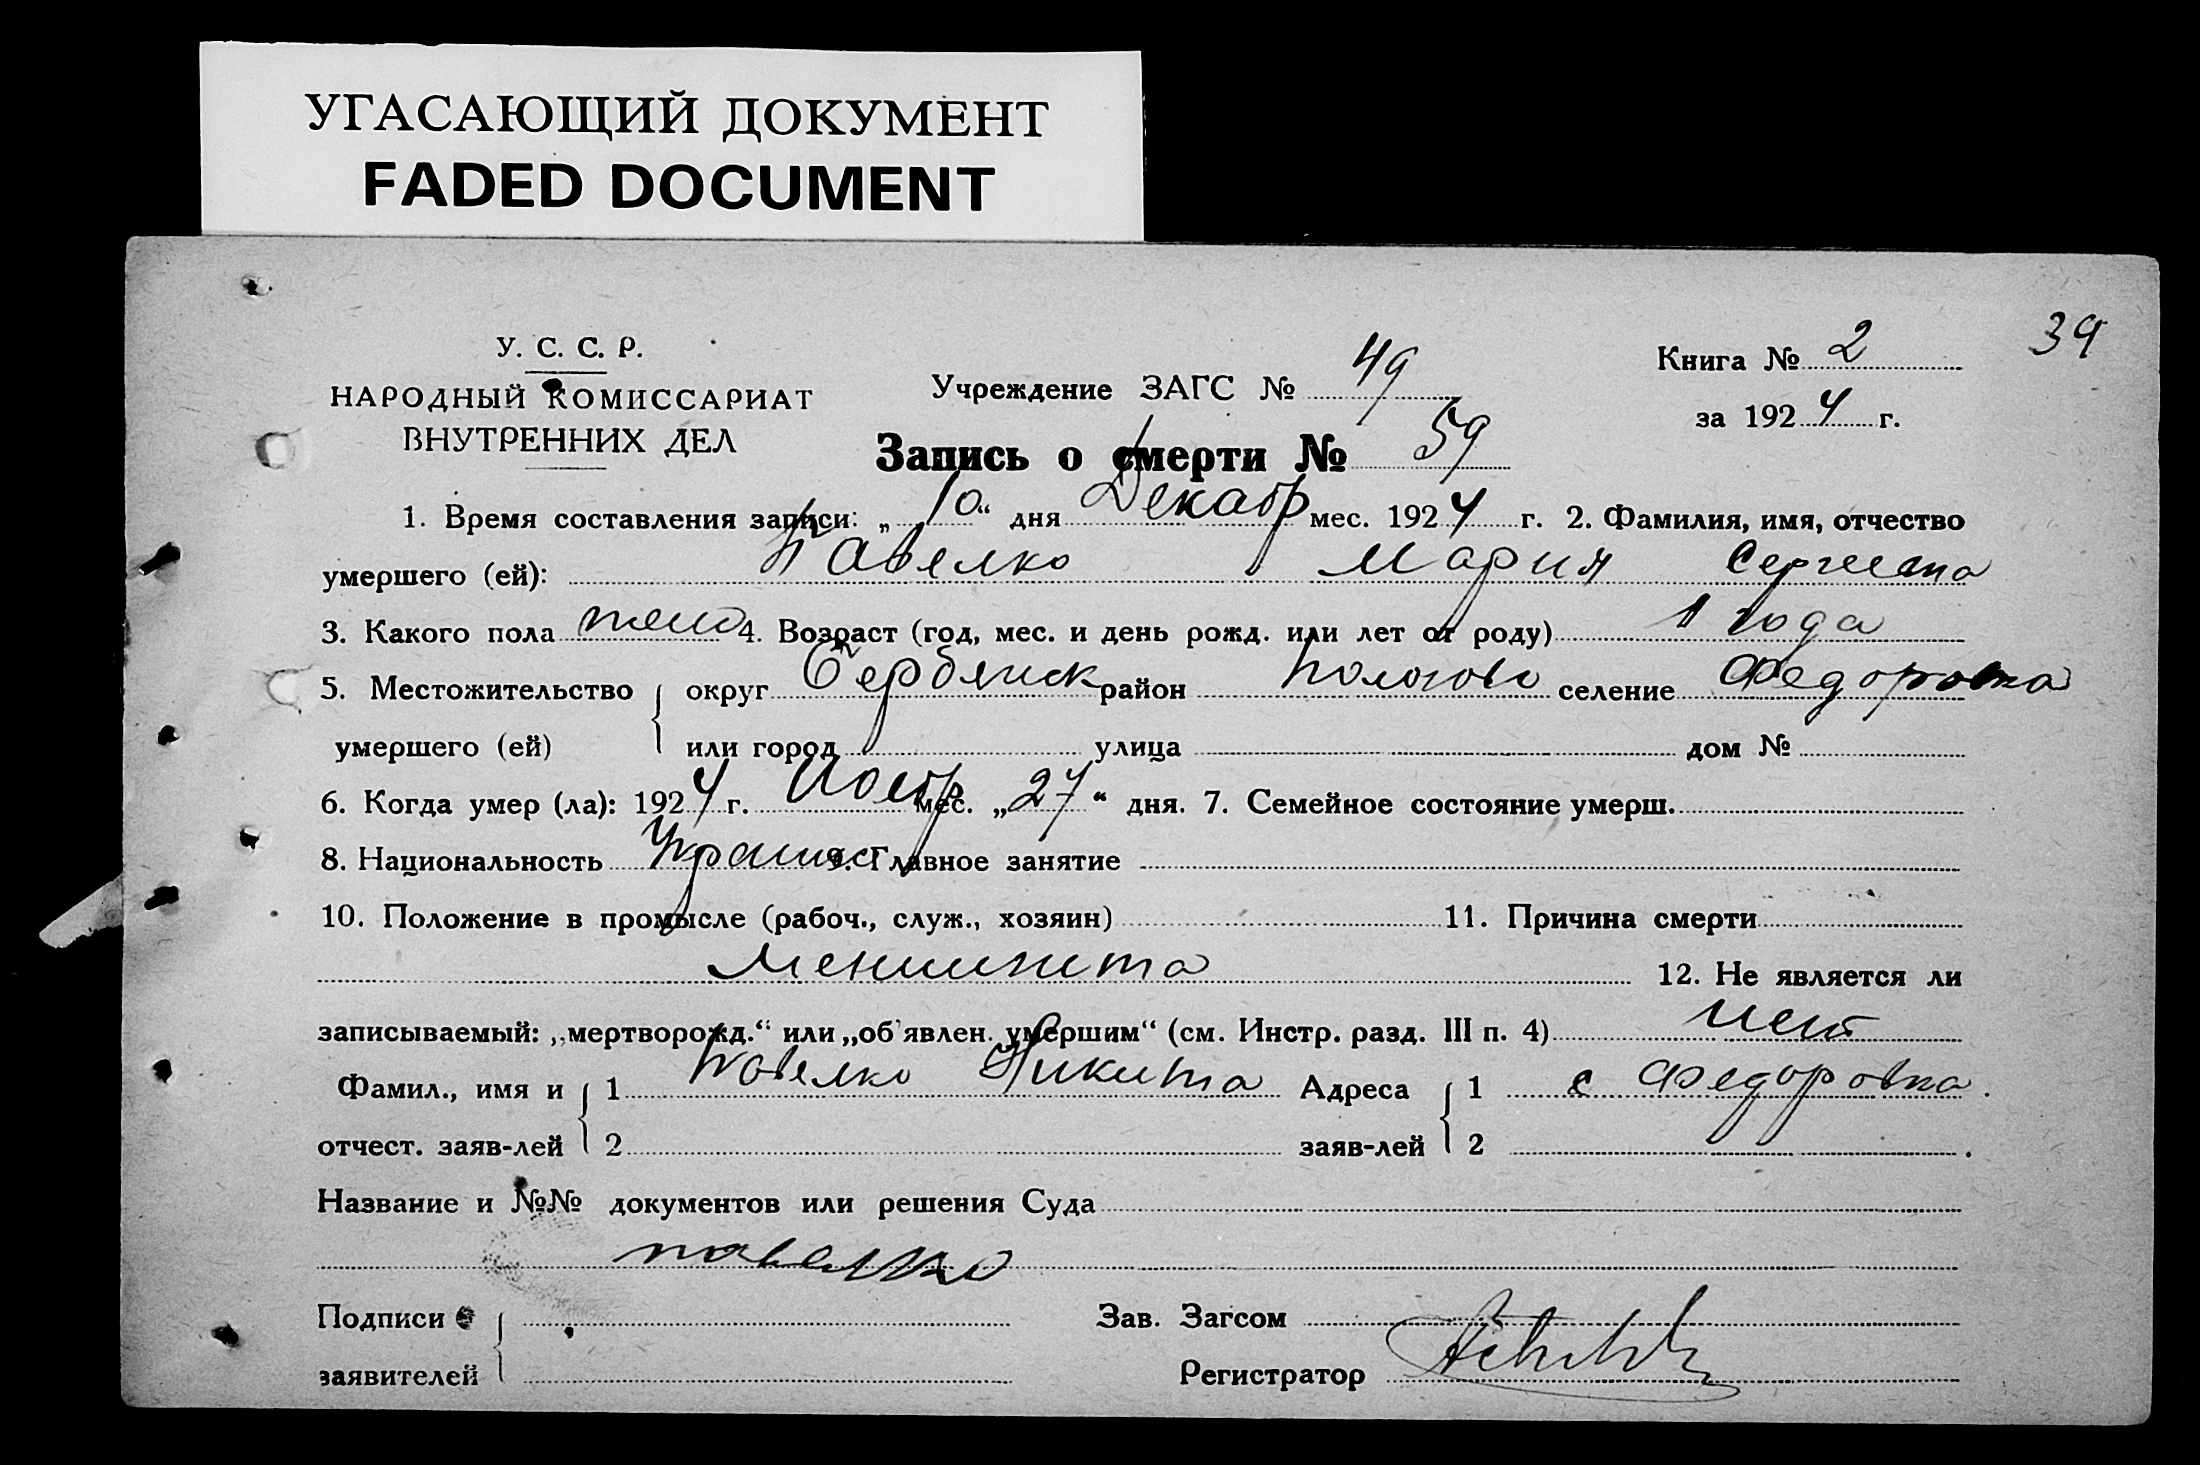 УГАСАЮЩИЙ ДОКУМЕНТ
FADED DOCUMENT
39
У. С. С. Р.
НАРОДНЫЙ КОМИССАРИАТ
ВНУТРЕННИХ ДЕЛ
Учреждение ЗАГС № 49
Книга № 2
за 1924 г.
Запись о смерти № 59
1. Время составления записи: „10“ дня Декабр мес. 1924 г. 2. Фамилия, имя, отчество
умершего (ей): Павелко Мария Сергеевна
3. Какого пола жен 4. Возраст (год, мес. и день рожд. или лет от роду) 1 года
5. Местожительство округ Бердянск район Пологово селение Федоровка
умершего (ей) или город улица дом №
6. Когда умер (ла): 1924 г. Ноябр мес. „27“ дня. 7. Семейное состояние умерш.
8. Национальность Украинс 9. Главное занятие
10. Положение в промысле (рабоч., служ., хозяин) 11. Причина смерти
12. Не является ли
записываемый: „мертворожд.“ или „об'явлен. умершим“ (см. Инстр. разд. III п. 4) нет
Фамил., имя и 1 Павелко Никита Адреса 1 с Федоровка.
отчест. заяв-лей 2 заяв-лей 2
Название и №№ документов или решения Суда
павелко
Подписи Зав. Загсом
заявителей Регистратор